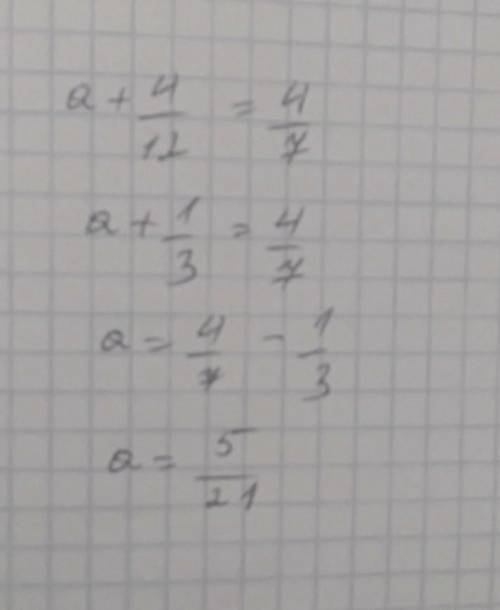 a + 4/12 = 4/7
a + 1/3 = 4/7
a = 4/7 - 1/3
a = 5/21